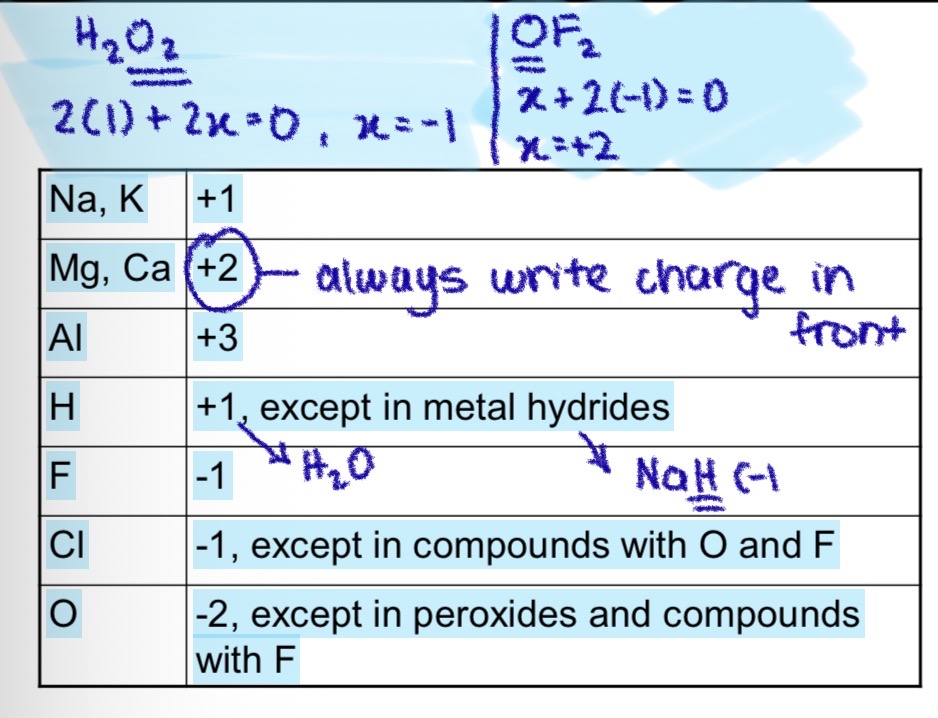 H₂O₂
2(1) + 2x = 0 , x = -1
OF₂
x + 2(-1) = 0
x = +2
Na, K +1
Mg, Ca +2 — always write charge in
front
Al +3
H +1, except in metal hydrides
H₂O NaH (-1
F -1
Cl -1, except in compounds with O and F
O -2, except in peroxides and compounds
with F